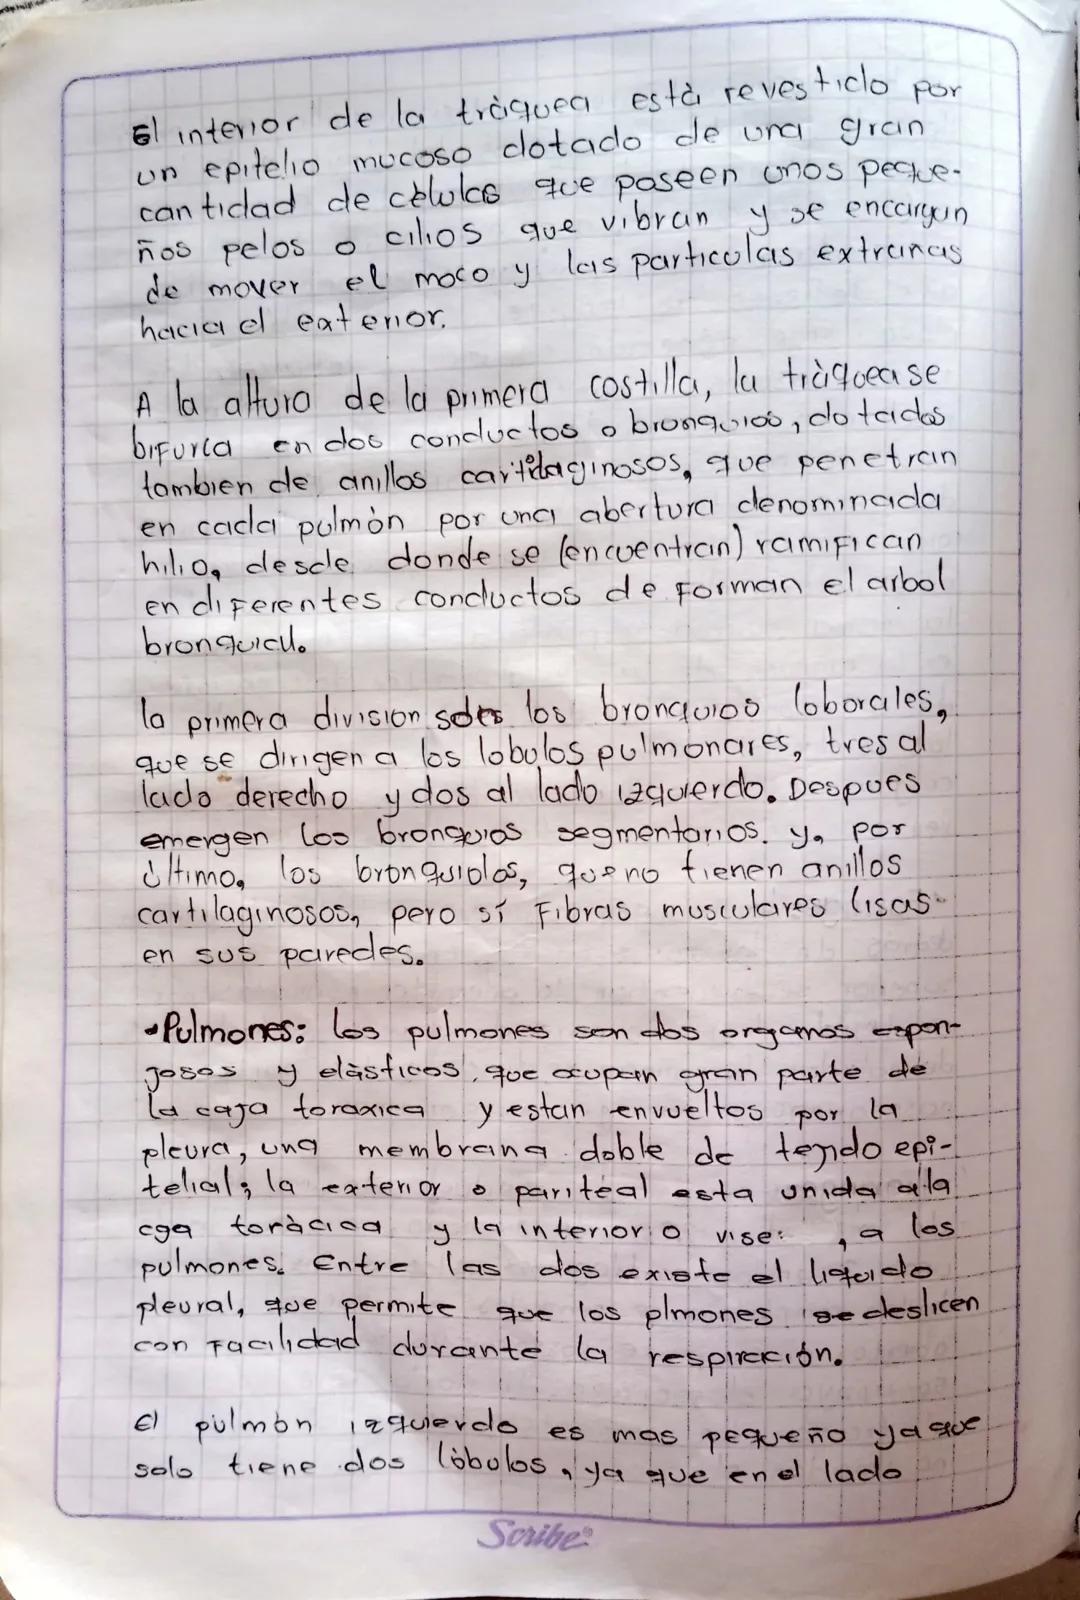 El interior de la tràquea està revestido por
un epitelio mucoso dotado de una gran
cantidad de cèlulas que poseen unos peque-
ños pelos o cilios que vibran y se encargan
de mover el moco y las particulas extranas
hacia el exterior.
A la altura de la primera costilla, la tràquea se
bifurca en dos conductos o bronquios, dotados
tambien de anillos cartilaginosos, que penetran
en cada pulmòn por una abertura denominada
hilio, desde donde se (encuentran) ramifican
en diferentes conductos de forman el arbol
bronquial.
la primera division los bronquios loborales,
que se dirigen a los lobulos pulmonares, tres al
lado derecho y dos al lado izquierdo. Despues
emergen los bronquios segmentarios. y, por
ùltimo, los bronquiolos, que no tienen anillos
cartilaginosos, pero sí fibras musculares lisas
en sus paredes.
• Pulmones: los pulmones son dos organos espon-
josos y elàsticos, que ocupan gran parte de
la caja toraxica y estan envueltos por la
pleura, una membrana doble de tejido epi-
telial; la exterior o pariteal esta unida a la
caja toràcica y la interior o , a los
pulmones. Entre las dos existe el liquido
pleural, que permite que los plmones se deslicen
con facilidad durante la respiración.
El pulmòn izquierdo es mas pequeño ya que
solo tiene dos lòbulos, ya que en el lado
Scribe®